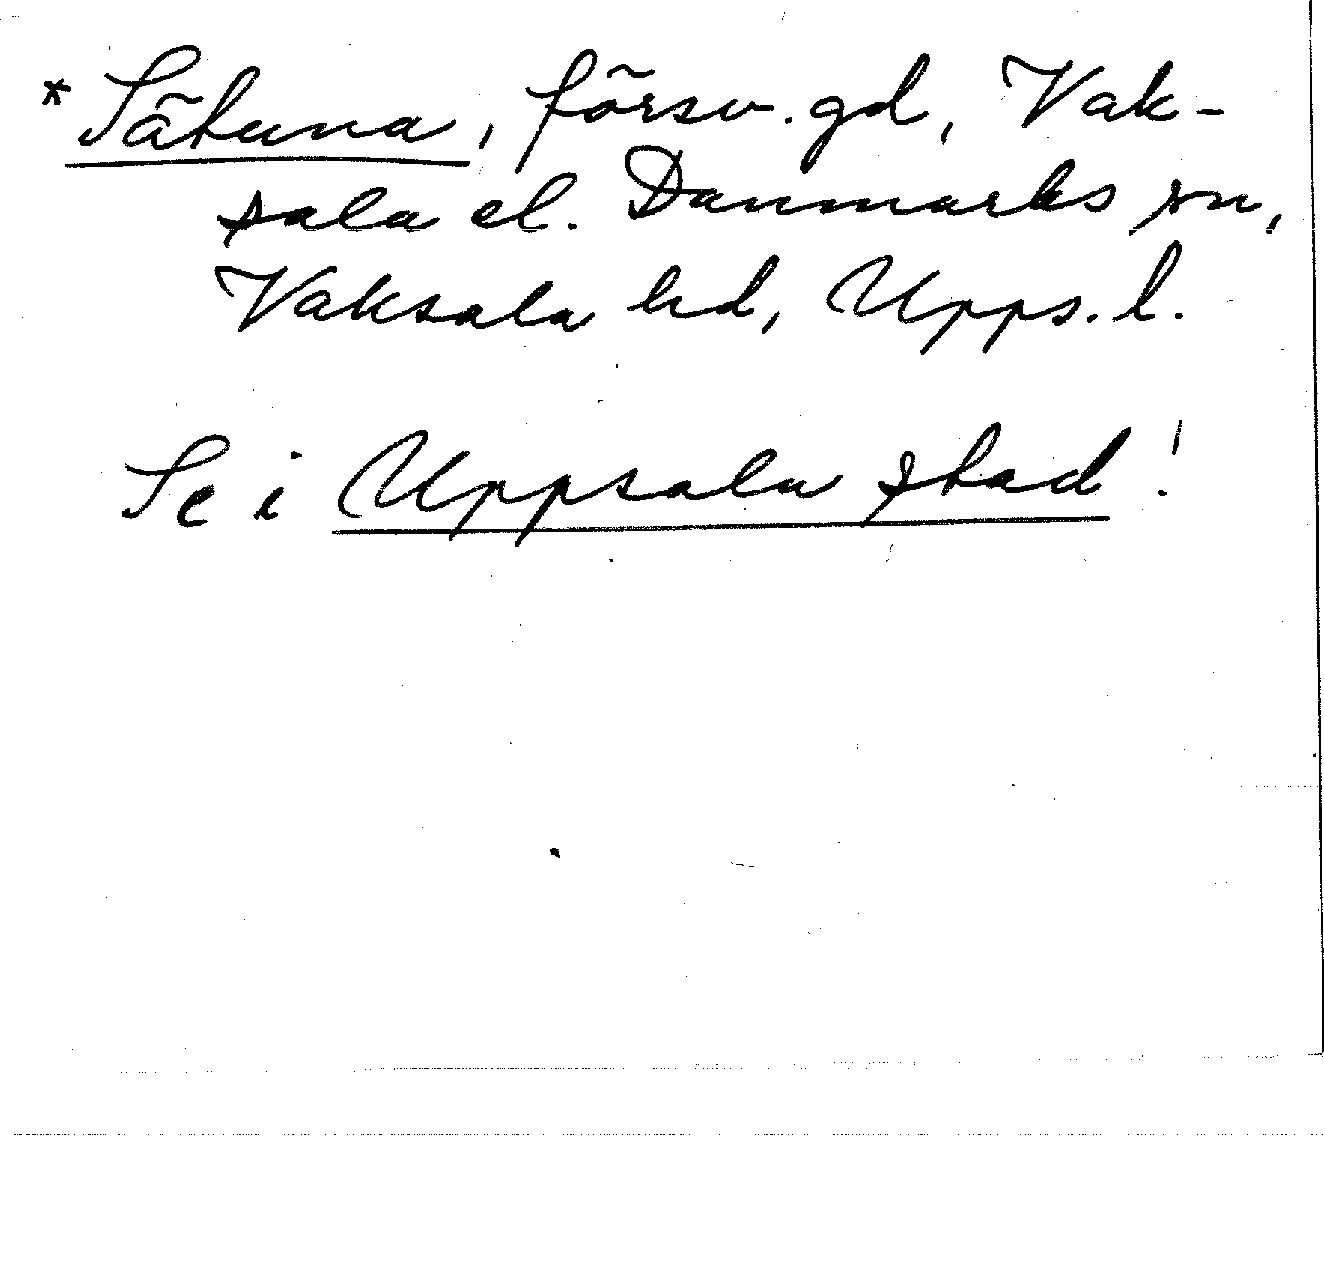 *Sätuna, försv. gd, Vak-
sala el. Danmarks sn,
Vaksala hd, Upps. l.
Se i Uppsala stad!